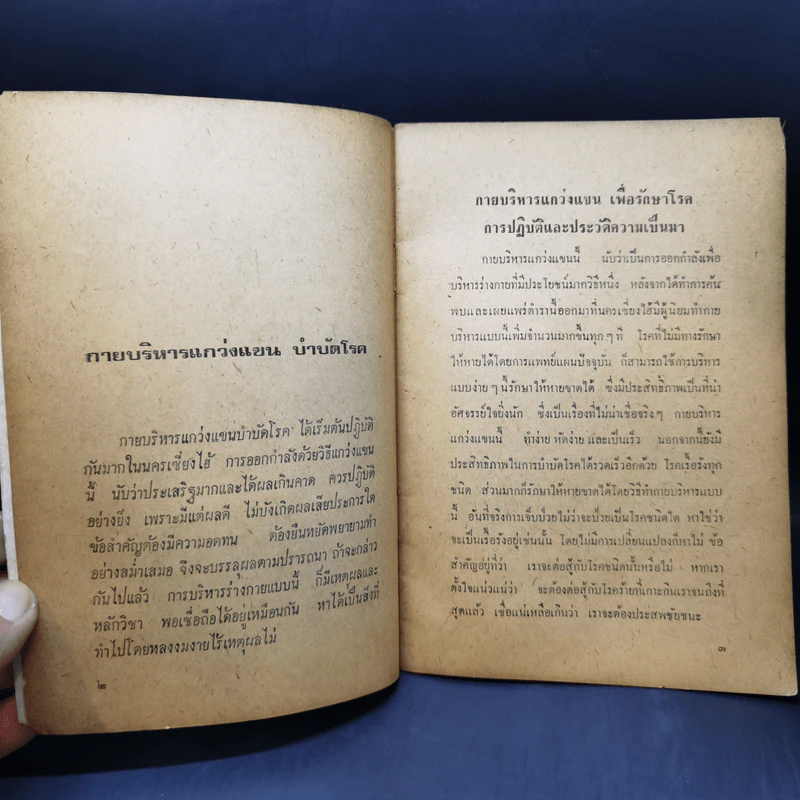 กายบริหารแกว่งแขน บำบัดโรค
กายบริหารแกว่งแขนบำบัดโรค ได้เริ่มต้นปฏิบัติ
กันมากในนครเซี่ยงไฮ้ การออกกำลังด้วยวิธีแกว่งแขน
นี้ นับว่าประเสริฐมากและได้ผลเกินคาด ควรปฏิบัติ
อย่างยิ่ง เพราะมีแต่ผลดี ไม่บังเกิดผลเสียประการใด
ข้อสำคัญต้องมีความอดทน ต้องยืนหยัดพยายามทำ
อย่างสม่ำเสมอ จึงจะบรรลุผลตามปรารถนา ถ้าจะกล่าว
กันไปแล้ว การบริหารร่างกายแบบนี้ ก็มีเหตุผลและ
หลักวิชา พอเชื่อถือได้อยู่เหมือนกัน หาได้เป็นสิ่งที่
ทำไปโดยหลงงมงายไร้เหตุผลไม่
๒
กายบริหารแกว่งแขน เพื่อรักษาโรค
การปฏิบัติและประวัติความเป็นมา
กายบริหารแกว่งแขนนี้ นับว่าเป็นการออกกำลังเพื่อ
บริหารร่างกายที่มีประโยชน์มากวิธีหนึ่ง หลังจากได้ทำการค้น
พบและเผยแพร่ตำรานี้ออกมาที่นครเซี่ยงไฮ้มีผู้นิยมทำกาย
บริหารแบบนี้เพิ่มจำนวนมากขึ้นทุกๆ ที โรคที่ไม่มีทางรักษา
ให้หายได้โดยการแพทย์แผนปัจจุบัน ก็สามารถใช้การบริหาร
แบบง่ายๆ นี้รักษาให้หายขาดได้ ซึ่งมีประสิทธิภาพเป็นที่น่า
อัศจรรย์ใจยิ่งนัก ซึ่งเป็นเรื่องที่ไม่น่าเชื่อจริงๆ กายบริหาร
แกว่งแขนนี้ ทำง่าย หัดง่าย และเป็นเร็ว นอกจากนี้ยังมี
ประสิทธิภาพในการบำบัดโรคได้รวดเร็วอีกด้วย โรคเรื้อรังทุก
ชนิด ส่วนมากก็รักษาให้หายขาดได้โดยวิธีทำกายบริหารแบบ
นี้ อันที่จริงการเจ็บป่วยไม่ว่าจะป่วยเป็นโรคชนิดใด หาใช่ว่า
จะเป็นเรื้อรังอยู่เช่นนั้น โดยไม่มีการเปลี่ยนแปลงก็หาไม่ ข้อ
สำคัญอยู่ที่ว่า เราจะต่อสู้กับโรคชนิดนั้นหรือไม่ หากเรา
ตั้งใจแน่วแน่ว่า จะต้องต่อสู้กับโรคร้ายที่เกาะกินเราจนถึงที่
สุดแล้ว เชื่อแน่เหลือเกินว่า เราจะต้องประสพชัยชนะ
๓